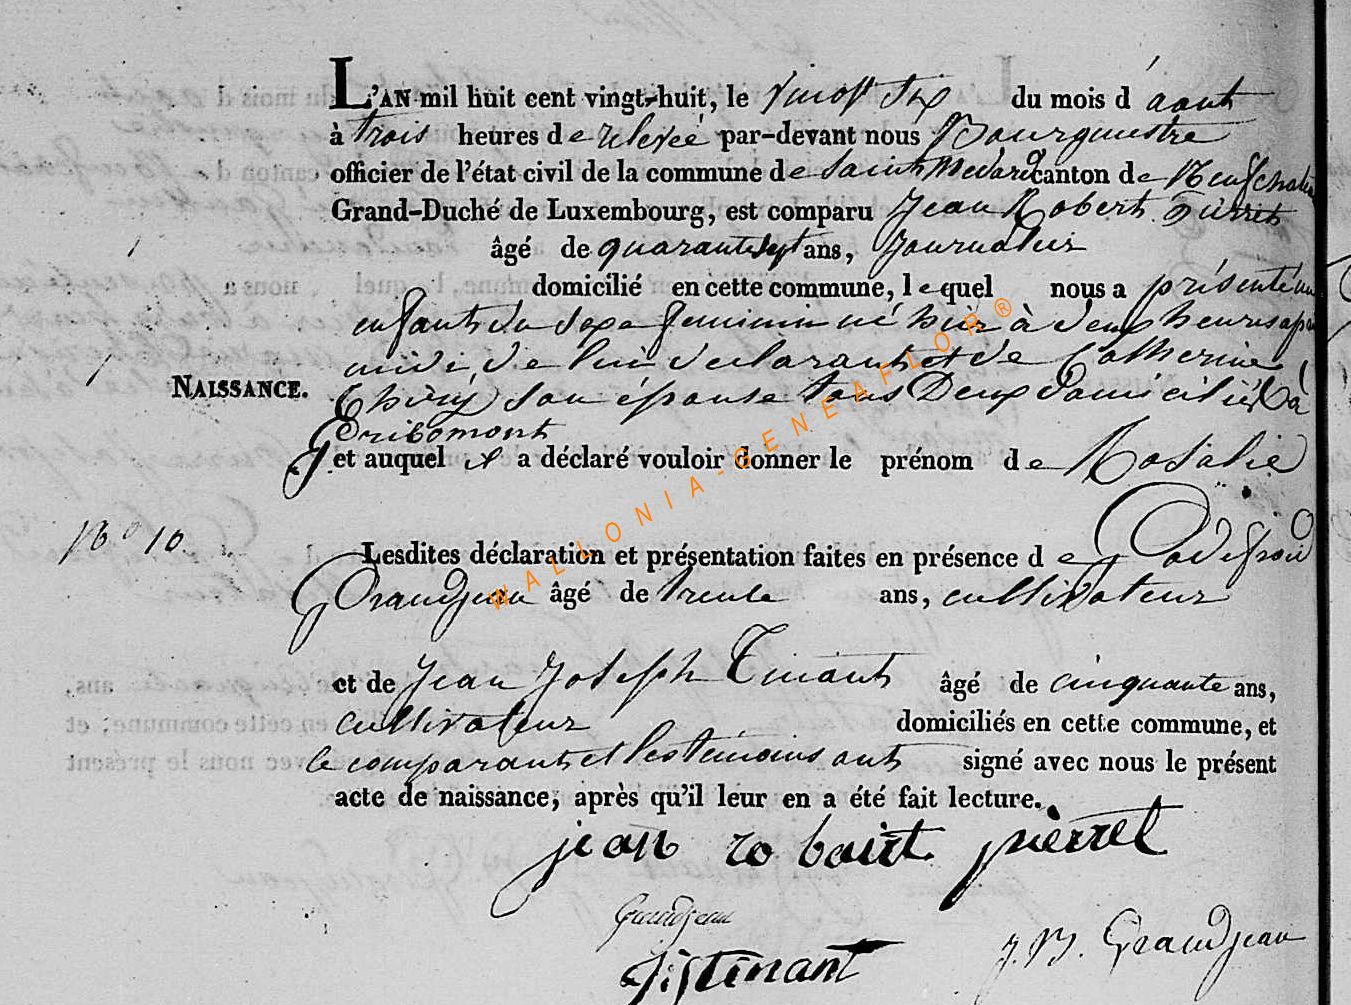 L'AN mil huit cent vingt-huit, le vingt six du mois d'août
à trois heures de relevée par-devant nous Bourguestre
officier de l'état civil de la commune de Saint Medard canton de Neufchateau
Grand-Duché de Luxembourg, est comparu Jean Robert Pierret
âgé de quarante sept ans, Journalier
domicilié en cette commune, lequel nous a présenté un
enfant du sexe feminin né hier à deux heures apres
midi de lui declarant et de Catherine
NAISSANCE.
son épouse tous Deux domiciliés à
Gribomont
et auquel il a déclaré vouloir donner le prénom de Rosalie
No 10
Lesdites déclaration et présentation faites en présence de Godefroid
Grandjean âgé de trente ans, cultivateur
et de Jean Joseph Tinant âgé de cinquante ans,
cultivateur domiciliés en cette commune, et
le comparant et les temoins ont signé avec nous le présent
acte de naissance, après qu'il leur en a été fait lecture.
jean robairt pierret
Grandjean
J. B. Grandjean
jjtinant
WALLONIA-GENEAFLOR®